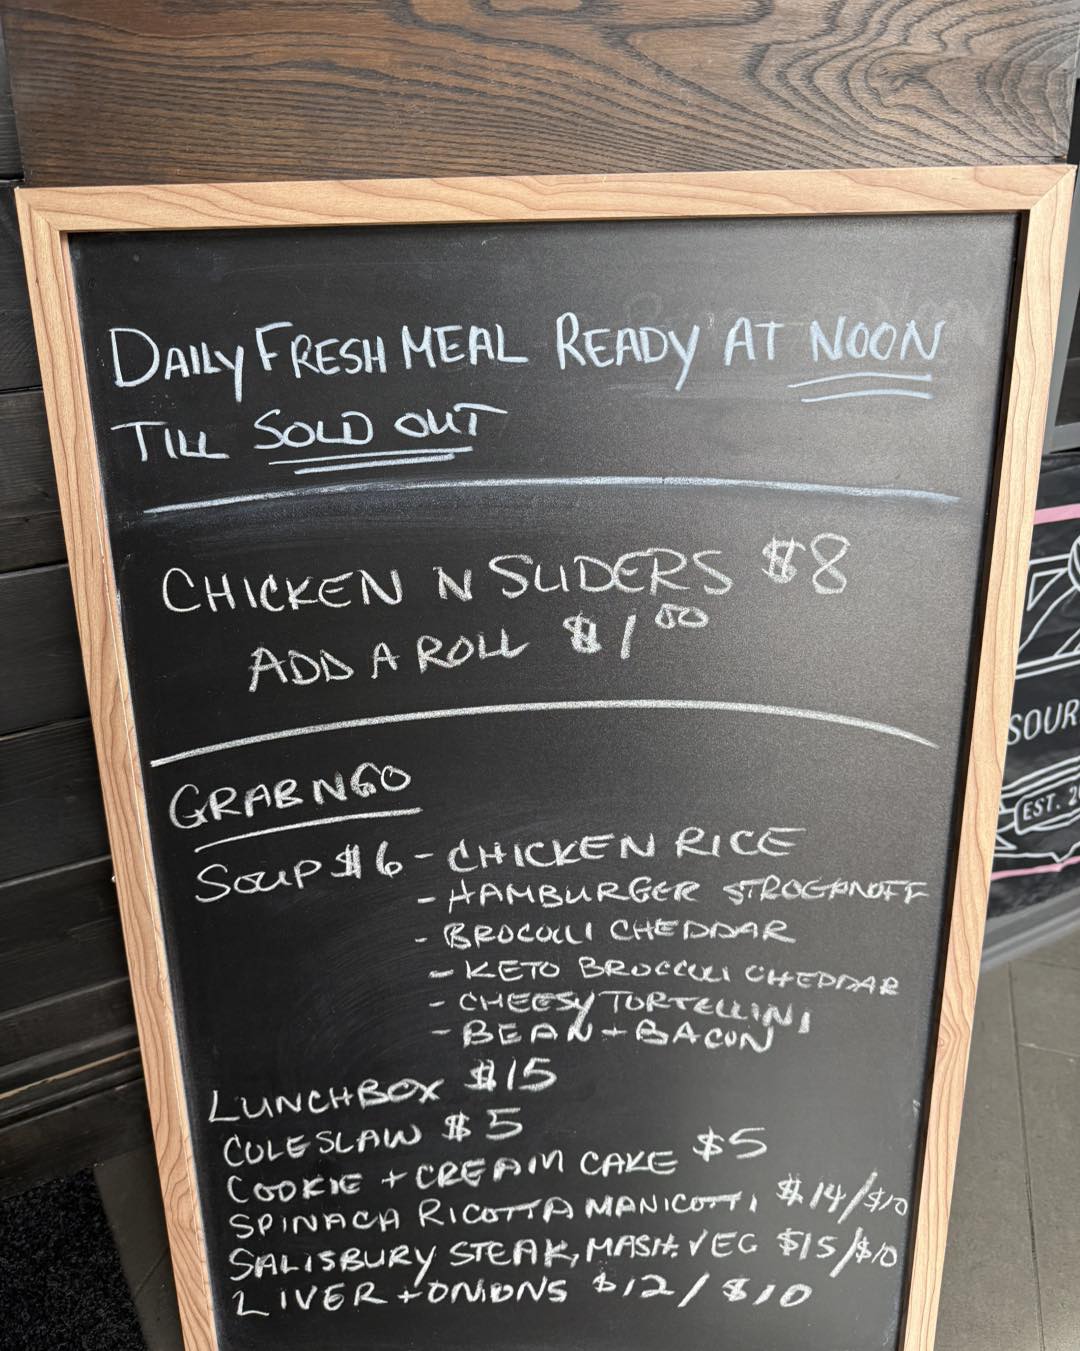 DAILY FRESH MEAL READY AT NOON
TILL SOLD OUT
CHICKEN N SLIDERS $8
ADD A ROLL $1.00
GRAB N GO
SOUP $6 - CHICKEN RICE
- HAMBURGER STROGANOFF
- BROCOLLI CHEDDAR
- KETO BROCCOLI CHEDDAR
- CHEESY TORTELLINI
- BEAN + BACON
LUNCHBOX $15
COLESLAW $5
COOKIE + CREAM CAKE $5
SPINACH RICOTTA MANICOTTI $14/$10
SALISBURY STEAK, MASH. VEG $15/$10
LIVER + ONIONS $12/$10
SOUR
EST. 2